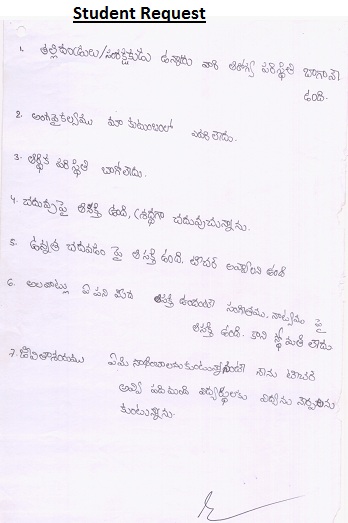 Student Request
1. తల్లిదండ్రులు/సంరక్షకుడు ఉన్నారు వారి ఆరోగ్య పరిస్థితి బాగానే
ఉంది.
2. అంగవైకల్యము మా కుటుంబంలో ఎవరికీ లేదు.
3. ఆర్థిక పరిస్థితి బాగోలేదు.
4. చదువుపై ఆసక్తి ఉంది, శ్రద్ధగా చదువుచున్నాను.
5. ఉన్నత చదవడం పై ఆసక్తి ఉంది. టీచర్ అవ్వాలని ఉంది
6. అలవాట్లు ఏ పని మీద ఆసక్తి ఉందంటే సంగీతము, నాట్యము పై
ఆసక్తి ఉంది. కాని స్థోమత లేదు
7. జీవితాశయము ఏమి సాధించాలనుకుంటున్నానంటే నేను టీచర్
అయ్యి పది మంది విద్యార్థులకు విద్యను నేర్పాలను
కుంటున్నాను.